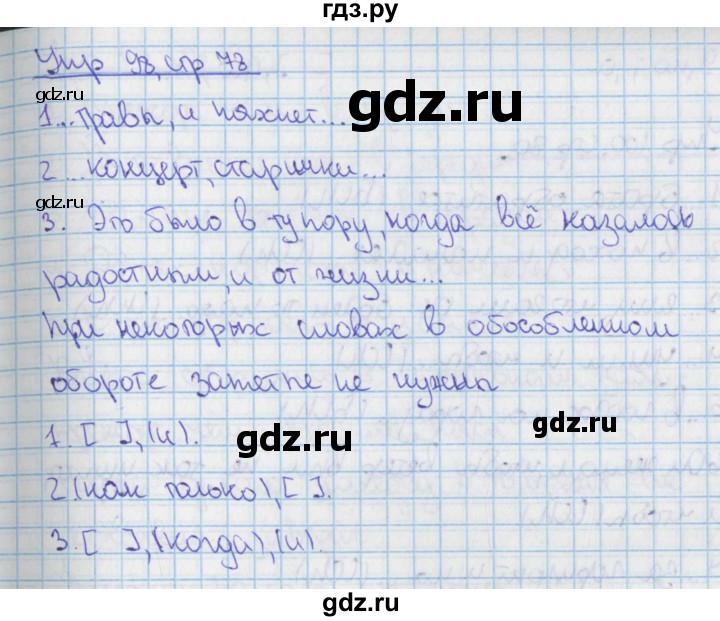 гдз.ру
Упр 98, стр 78
gdz.ru
1...травы, и пахнет...
gdz.ru
2...концерт, старички...
gdz.ru
3. Это было в ту пору, когда всё казалось
радостным, и от жизни...
При некоторых словах в обособленном
обороте запятые не нужны
1. [ ], (и).
gdz.ru
gdz.ru
2 (как только), [ ].
3. [ ], (когда), (и).
gdz.ru